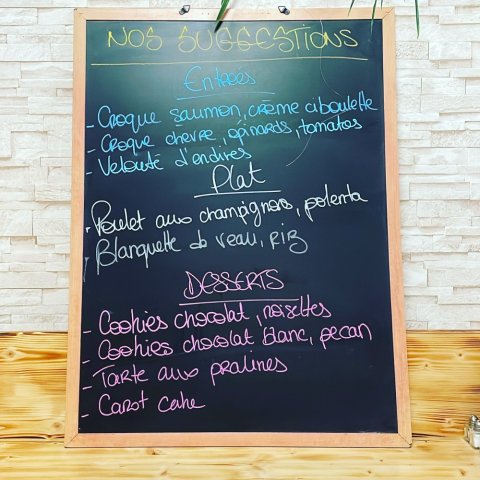 NOS SUGGESTIONS
Entrées
- Croque saumon, crème ciboulette
- Croque chèvre, épinards, tomates
- Velouté d'endives
Plat
- Poulet aux champignons, polenta
- Blanquette de veau, RIZ
DESSERTS
- Cookies chocolat, noisettes
- Cookies chocolat blanc, pecan
- Tarte aux pralines
- Carot cake